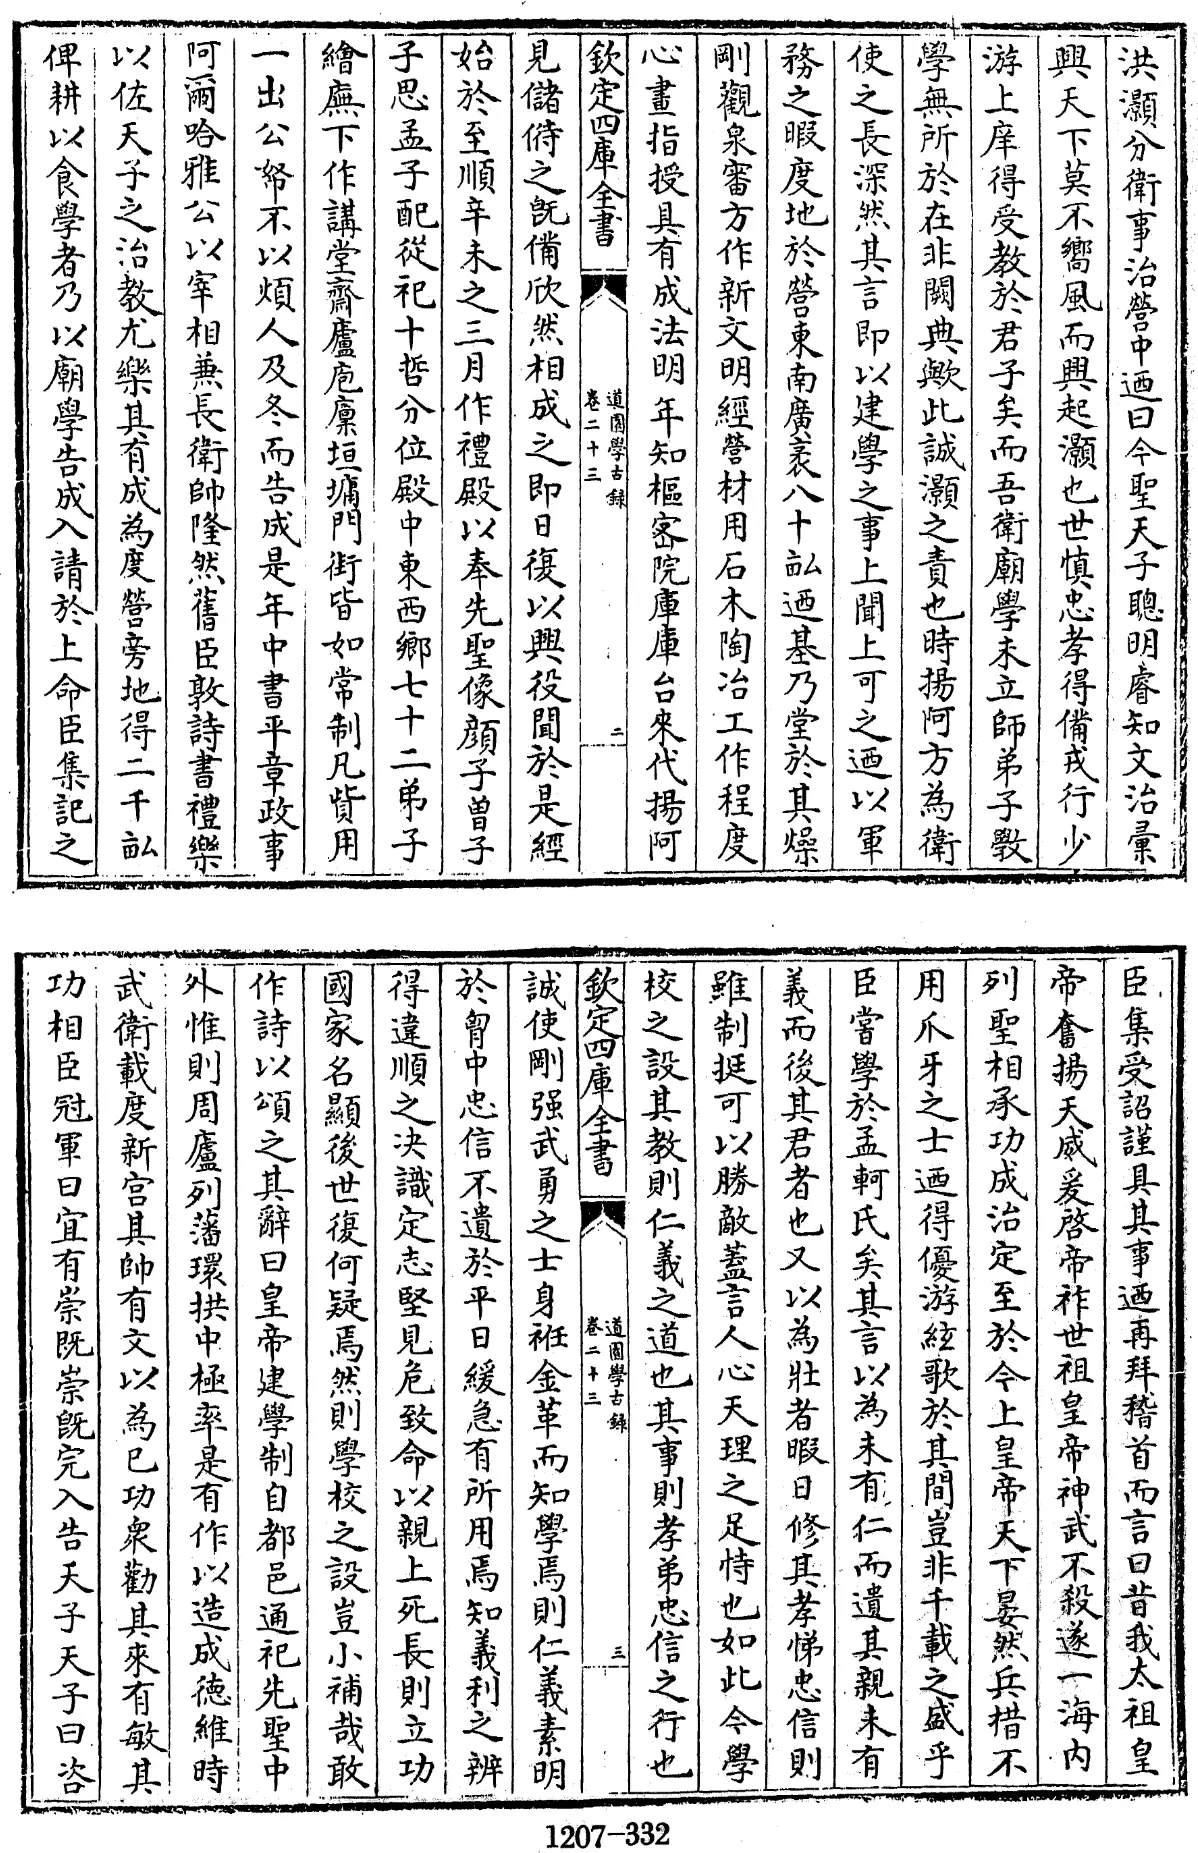 洪灝分衛事治營中迺曰今聖天子聰明睿知文治彚
興天下莫不嚮風而興起灝也世慎忠孝得備戎行少
游上庠得受教於君子矣而吾衛廟學未立師弟子斆
學無所於在非闕典歟此誠灝之責也時揚阿方為衛
使之長深然其言即以建學之事上聞上可之迺以軍
務之暇度地於營東南廣袤八十畝迺基乃堂於其燥
剛觀泉審方作新文明經營材用石木陶冶工作程度
心畫指授具有成法明年知樞宻院庫庫台來代揚阿
欽定四庫全書
道園學古錄
卷二十三
二
見儲偫之既備欣然相成之即日復以興役聞於是經
始於至順辛未之三月作禮殿以奉先聖像顔子曽子
子思孟子配從祀十哲分位殿中東西鄉七十二弟子
繪廡下作講堂齋廬庖廩垣墉門街皆如常制凡貲用
一出公帑不以煩人及冬而告成是年中書平章政事
阿爾哈雅公以宰相兼長衛帥隆然舊臣敦詩書禮樂
以佐天子之治教尤樂其有成為度營旁地得二千畝
俾耕以食學者乃以廟學告成入請於上命臣集記之
臣集受詔謹具其事迺再拜稽首而言曰昔我太祖皇
帝奮揚天威爰啓帝祚世祖皇帝神武不殺遂一海内
列聖相承功成治定至於今上皇帝天下晏然兵措不
用爪牙之士迺得優游絃歌於其間豈非千載之盛乎
臣嘗學於孟軻氏矣其言以為未有仁而遺其親未有
義而後其君者也又以為壯者暇日修其孝悌忠信則
雖制挺可以勝敵蓋言人心天理之足恃也如此今學
校之設其教則仁義之道也其事則孝弟忠信之行也
欽定四庫全書
道園學古錄
卷二十三
三
誠使剛强武勇之士身袵金革而知學焉則仁義素明
於胷中忠信不遺於平日緩急有所用焉知義利之辨
得違順之决識定志堅見危致命以親上死長則立功
國家名顯後世復何疑焉然則學校之設豈小補哉敢
作詩以頌之其辭曰皇帝建學制自都邑通祀先聖中
外惟則周廬列藩環拱中極率是有作以造成德維時
武衛載度新宫其帥有文以為已功衆勸其來有敏其
功相臣冠軍曰宜有崇既崇既完入告天子天子曰咨
1207-332